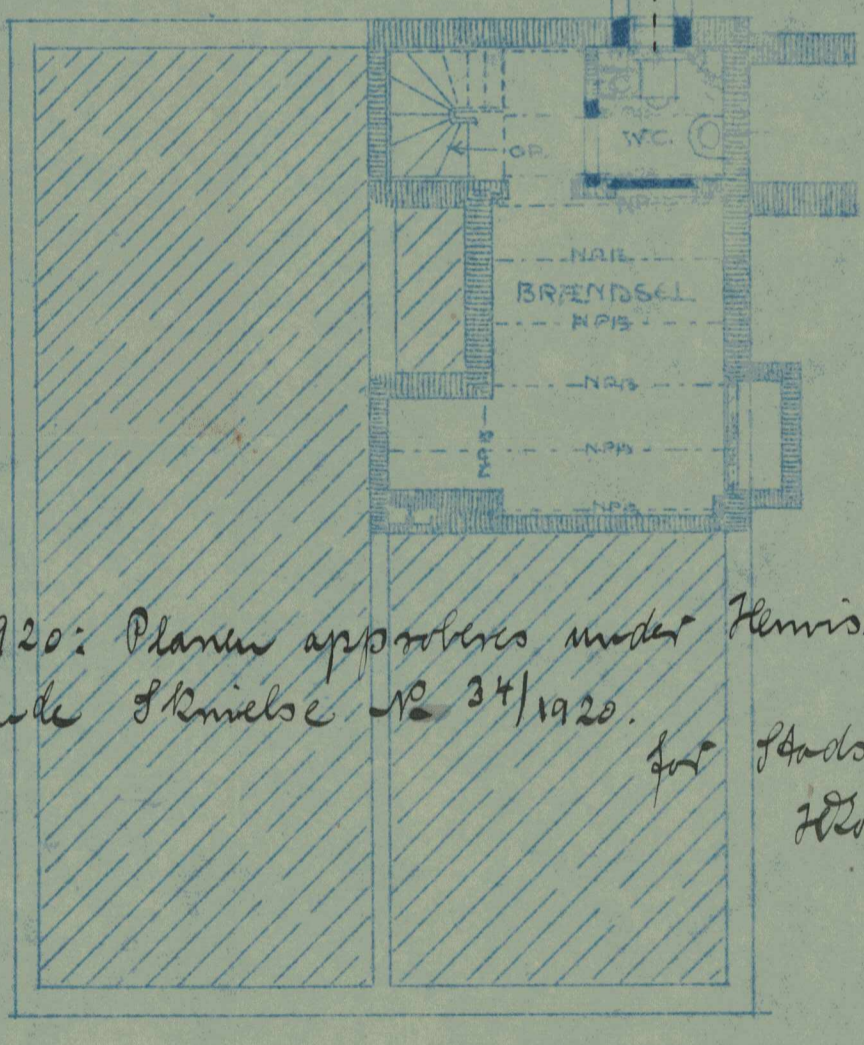 W.C.
OP.
N.P.15
N.P.15
BRÆNDSEL
N.P.15
N.P.15
N.P.15
N.P.15
N.P.15
920: Planen approberes under Henvis
de Skrivelse № 34/1920.
for Stads